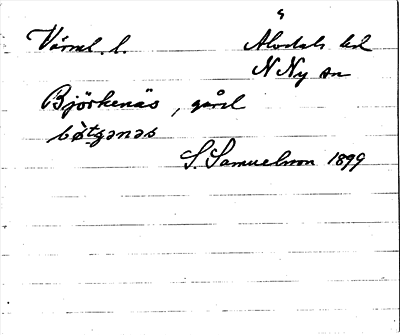 Värml. l. Älvdals hd
N Ny sn
Björkenäs, gård
S. Samuelsson 1899